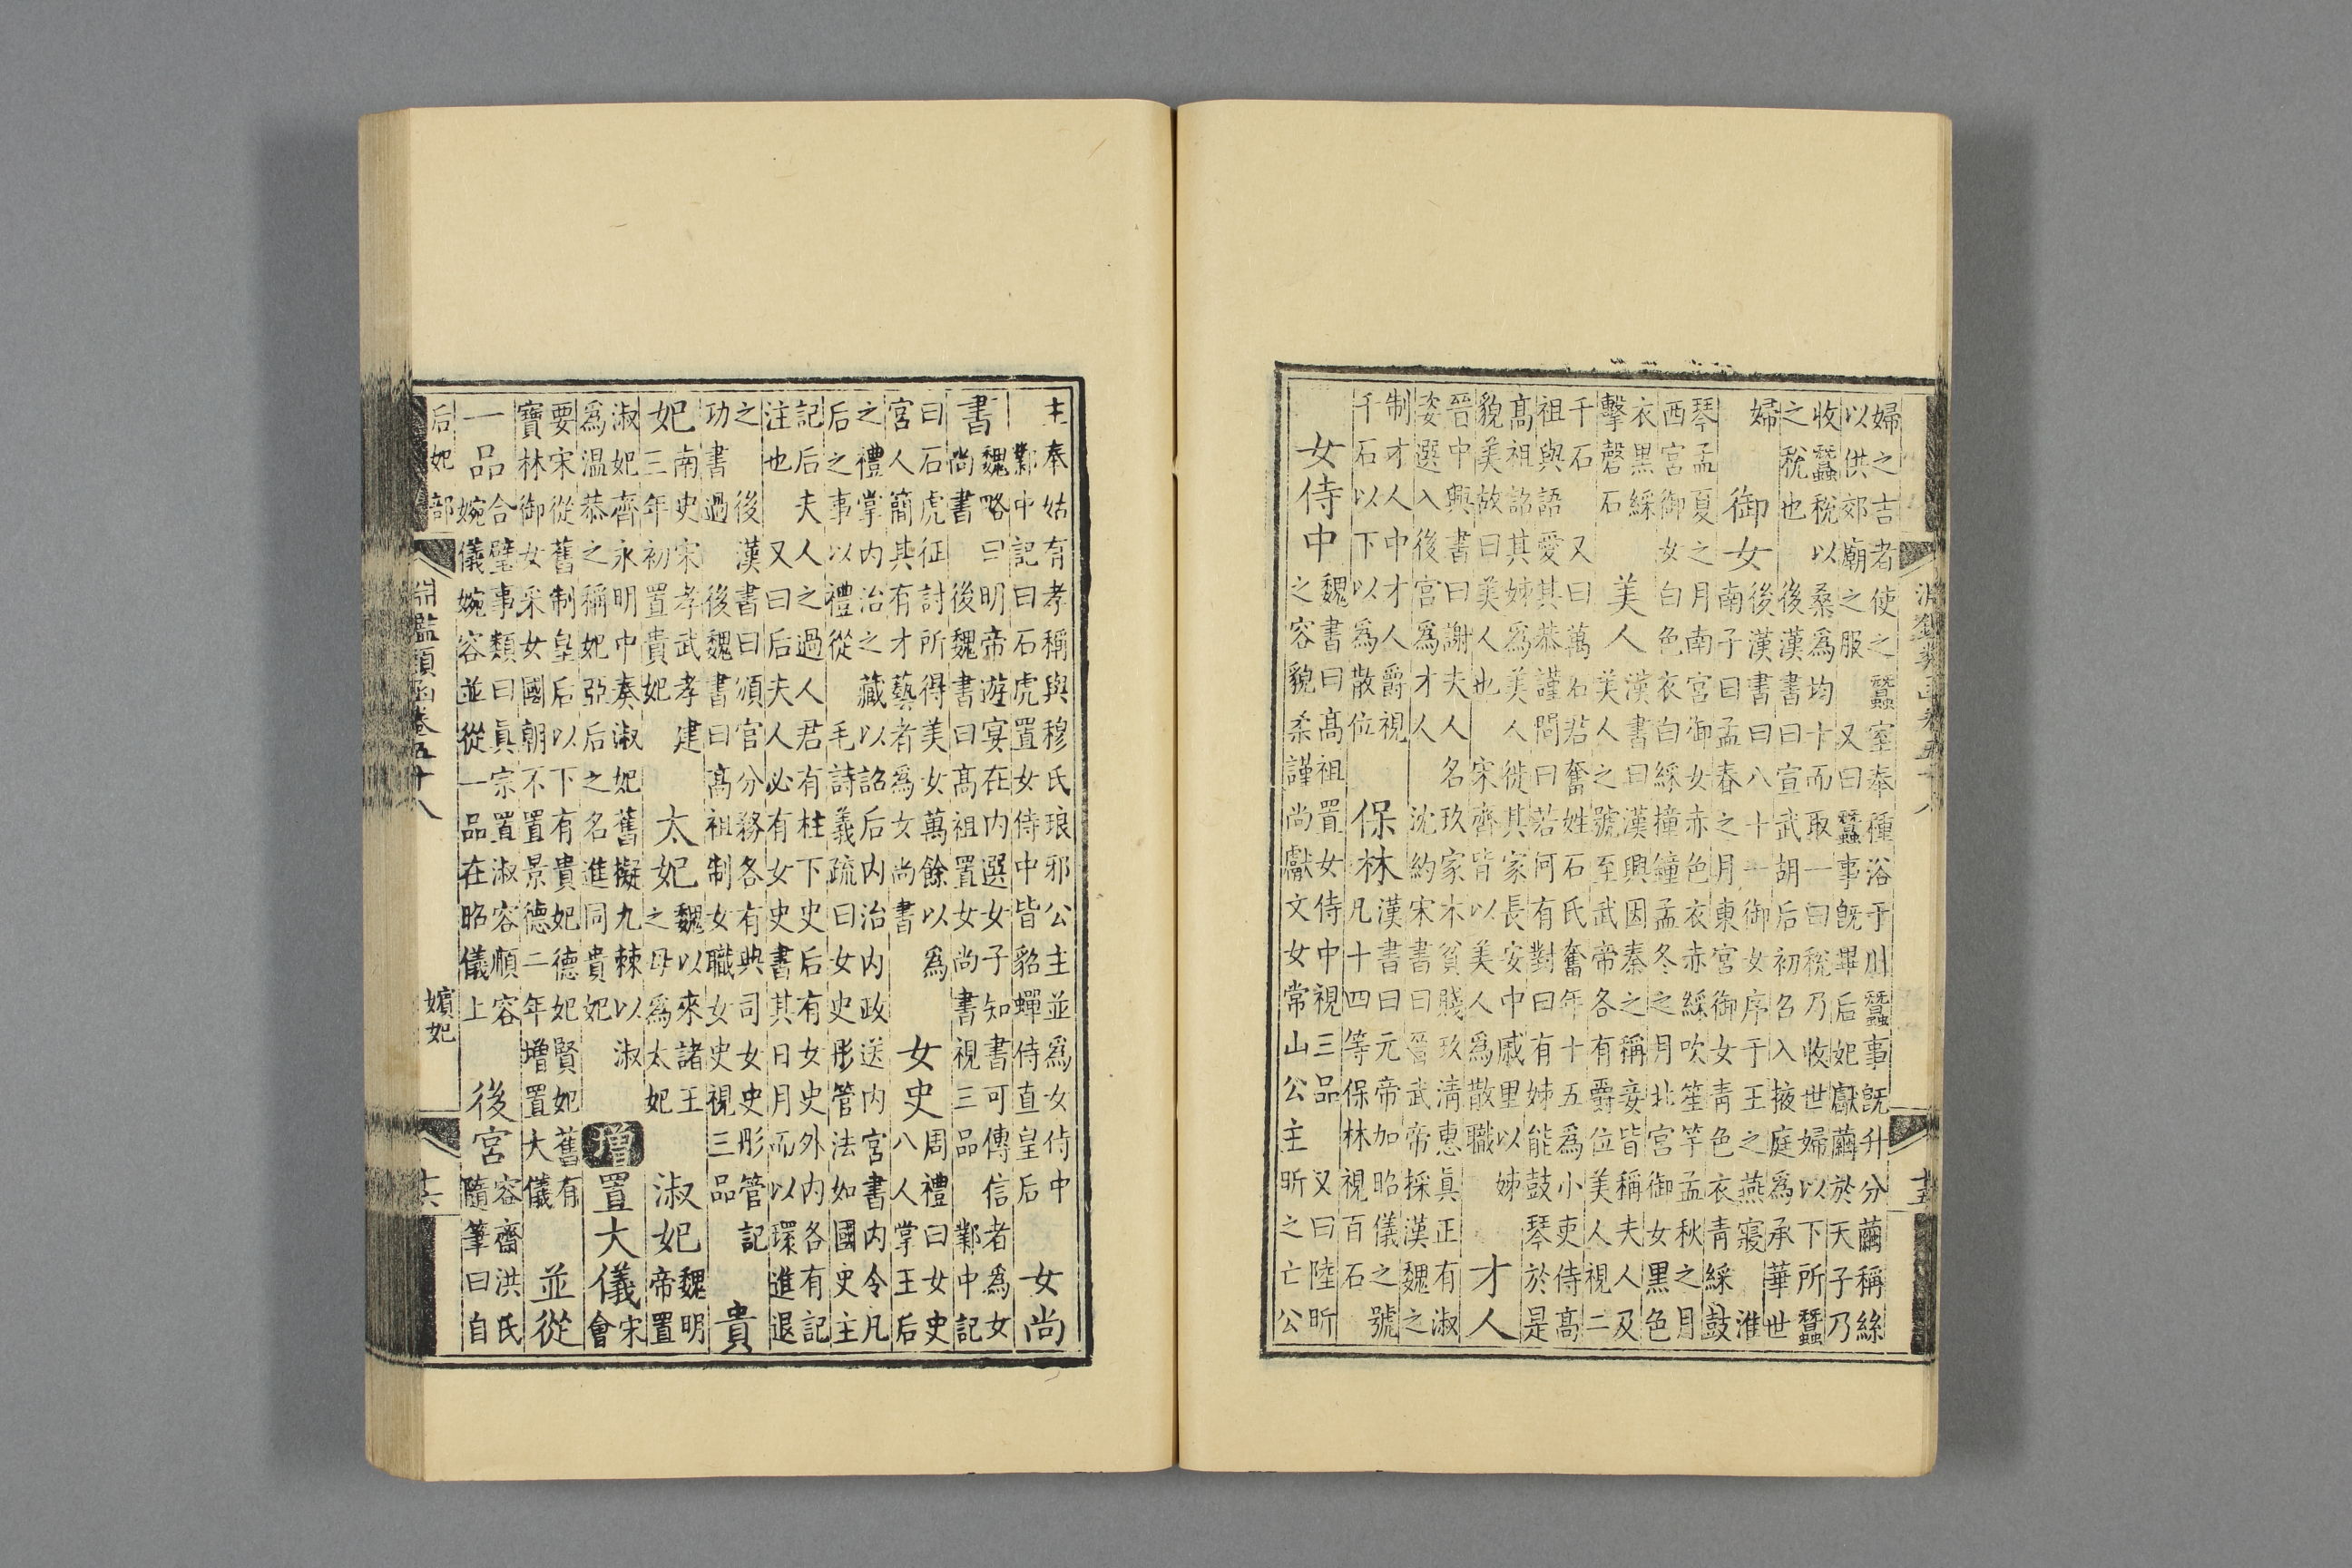 淵鑑類函卷五十八 十五
婦之吉者使之蠶室奉種浴于川蠶事既升分繭稱絲
以供郊廟之服 又曰蠶事既畢后妃獻繭於天子乃
收蠶稅以桑爲均十而取一曰稅乃收世婦以下所蠶
之稅也 後漢書曰宣武胡后初召入掖庭爲承華世
婦 御女 後漢書曰八十一御女序于王之燕寢 淮
南子曰孟春之月東宮御女青色衣青綵鼓
琴孟夏之月南宮御女赤色衣赤綵吹笙竽孟秋之月
西宮御女白色衣白綵撞鐘孟冬之月北宮御女黑色
衣黑綵
擊磬石
美人
漢書曰漢興因秦之稱妾皆稱夫人及
美人之號至武帝各有爵位美人視二
千石 又曰萬石君奮姓石氏奮年十五爲小吏侍高
祖與語愛其恭謹問曰若何有對曰有姊能鼓琴於是
高祖詔其姊爲美人徙其家長安中戚里以姊
貌美故曰美人也 宋齊皆以美人爲散職
才人
晉中興書曰謝夫人名玖家本貧賤玖清惠真正有淑
姿選入後宮爲才人 沈約宋書曰晉武帝採漢魏之
制才人中才人爵視
千石以下以爲散位
保林
漢書曰元帝加昭儀之號
凡十四等保林視百石
女侍中
魏書曰高祖置女侍中視三品 又曰陸昕
之容貌柔謹尚獻文女常山公主昕之亡公
主奉姑有孝稱與穆氏琅邪公主並爲女侍中
鄴中記曰石虎置女侍中皆貂蟬侍直皇后
女尚
書
魏略曰明帝遊宴在內選女子知書可傳信者爲女
尚書 後魏書曰高祖置女尚書視三品 鄴中記
曰石虎征討所得美女萬餘以爲
宮人簡其有才藝者爲女尚書
女史
周禮曰女史
八人掌王后
之禮掌內治之藏以詔后內治內政送內宮書內令凡
后之事以禮從 毛詩義疏曰女史彤管法如國史主
記后夫人之過人君有柱下史后有女史外內各有記
注也 又曰后夫人必有女史書其日月而以環進退
之 後漢書曰頒官分務各有典司女史彤管記
功書過 後魏書曰高祖制女職女史視三品
貴
妃
南史宋孝武孝建
三年初置貴妃
太妃
魏以來諸王
之母爲太妃
淑妃
魏明
帝置
淑妃齊永明中奏淑妃舊擬九棘以淑
爲溫恭之稱妃亞后之名進同貴妃
增置大儀
宋
會
要宋從舊制皇后以下有貴妃德妃賢妃舊有
寶林御女采女國朝不置景德二年增置大儀
並從
一品
合璧事類曰眞宗置淑容順容
婉儀婉容並從一品在昭儀上
後宮
容齋洪氏
隨筆曰自
后妃部 淵鑑類函卷五十八 嬪妃 十六